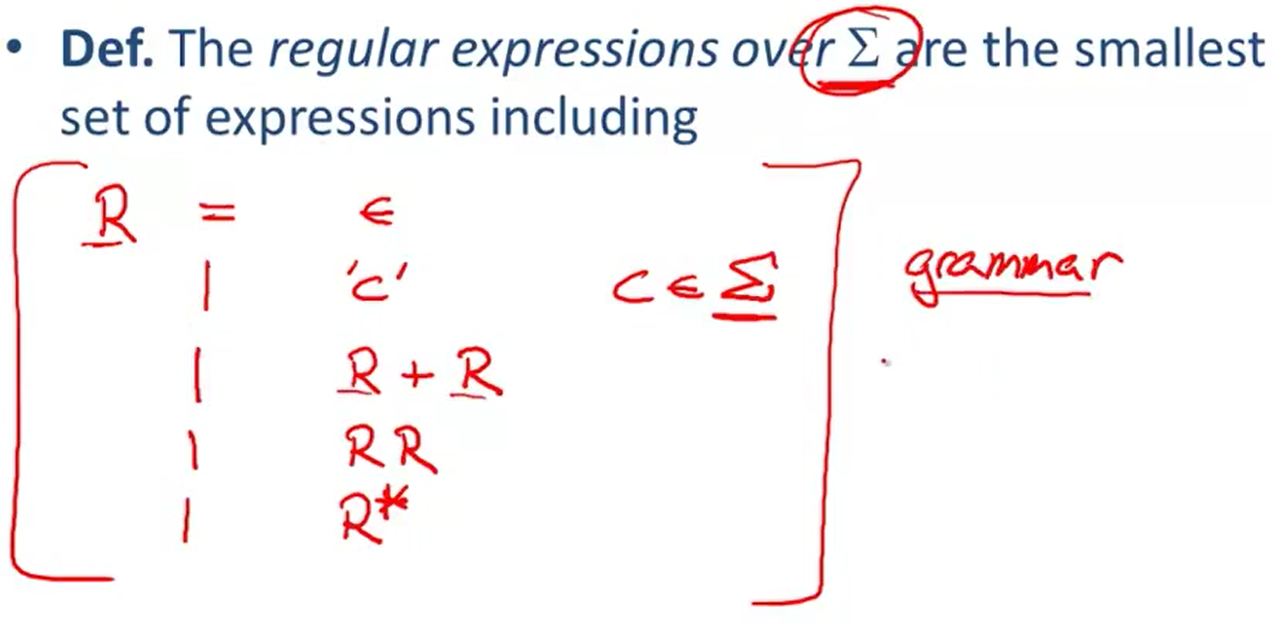 • Def. The regular expressions over Σ are the smallest
set of expressions including
R = ε
| 'c' c ∈ Σ
grammar
| R + R
| RR
| R*